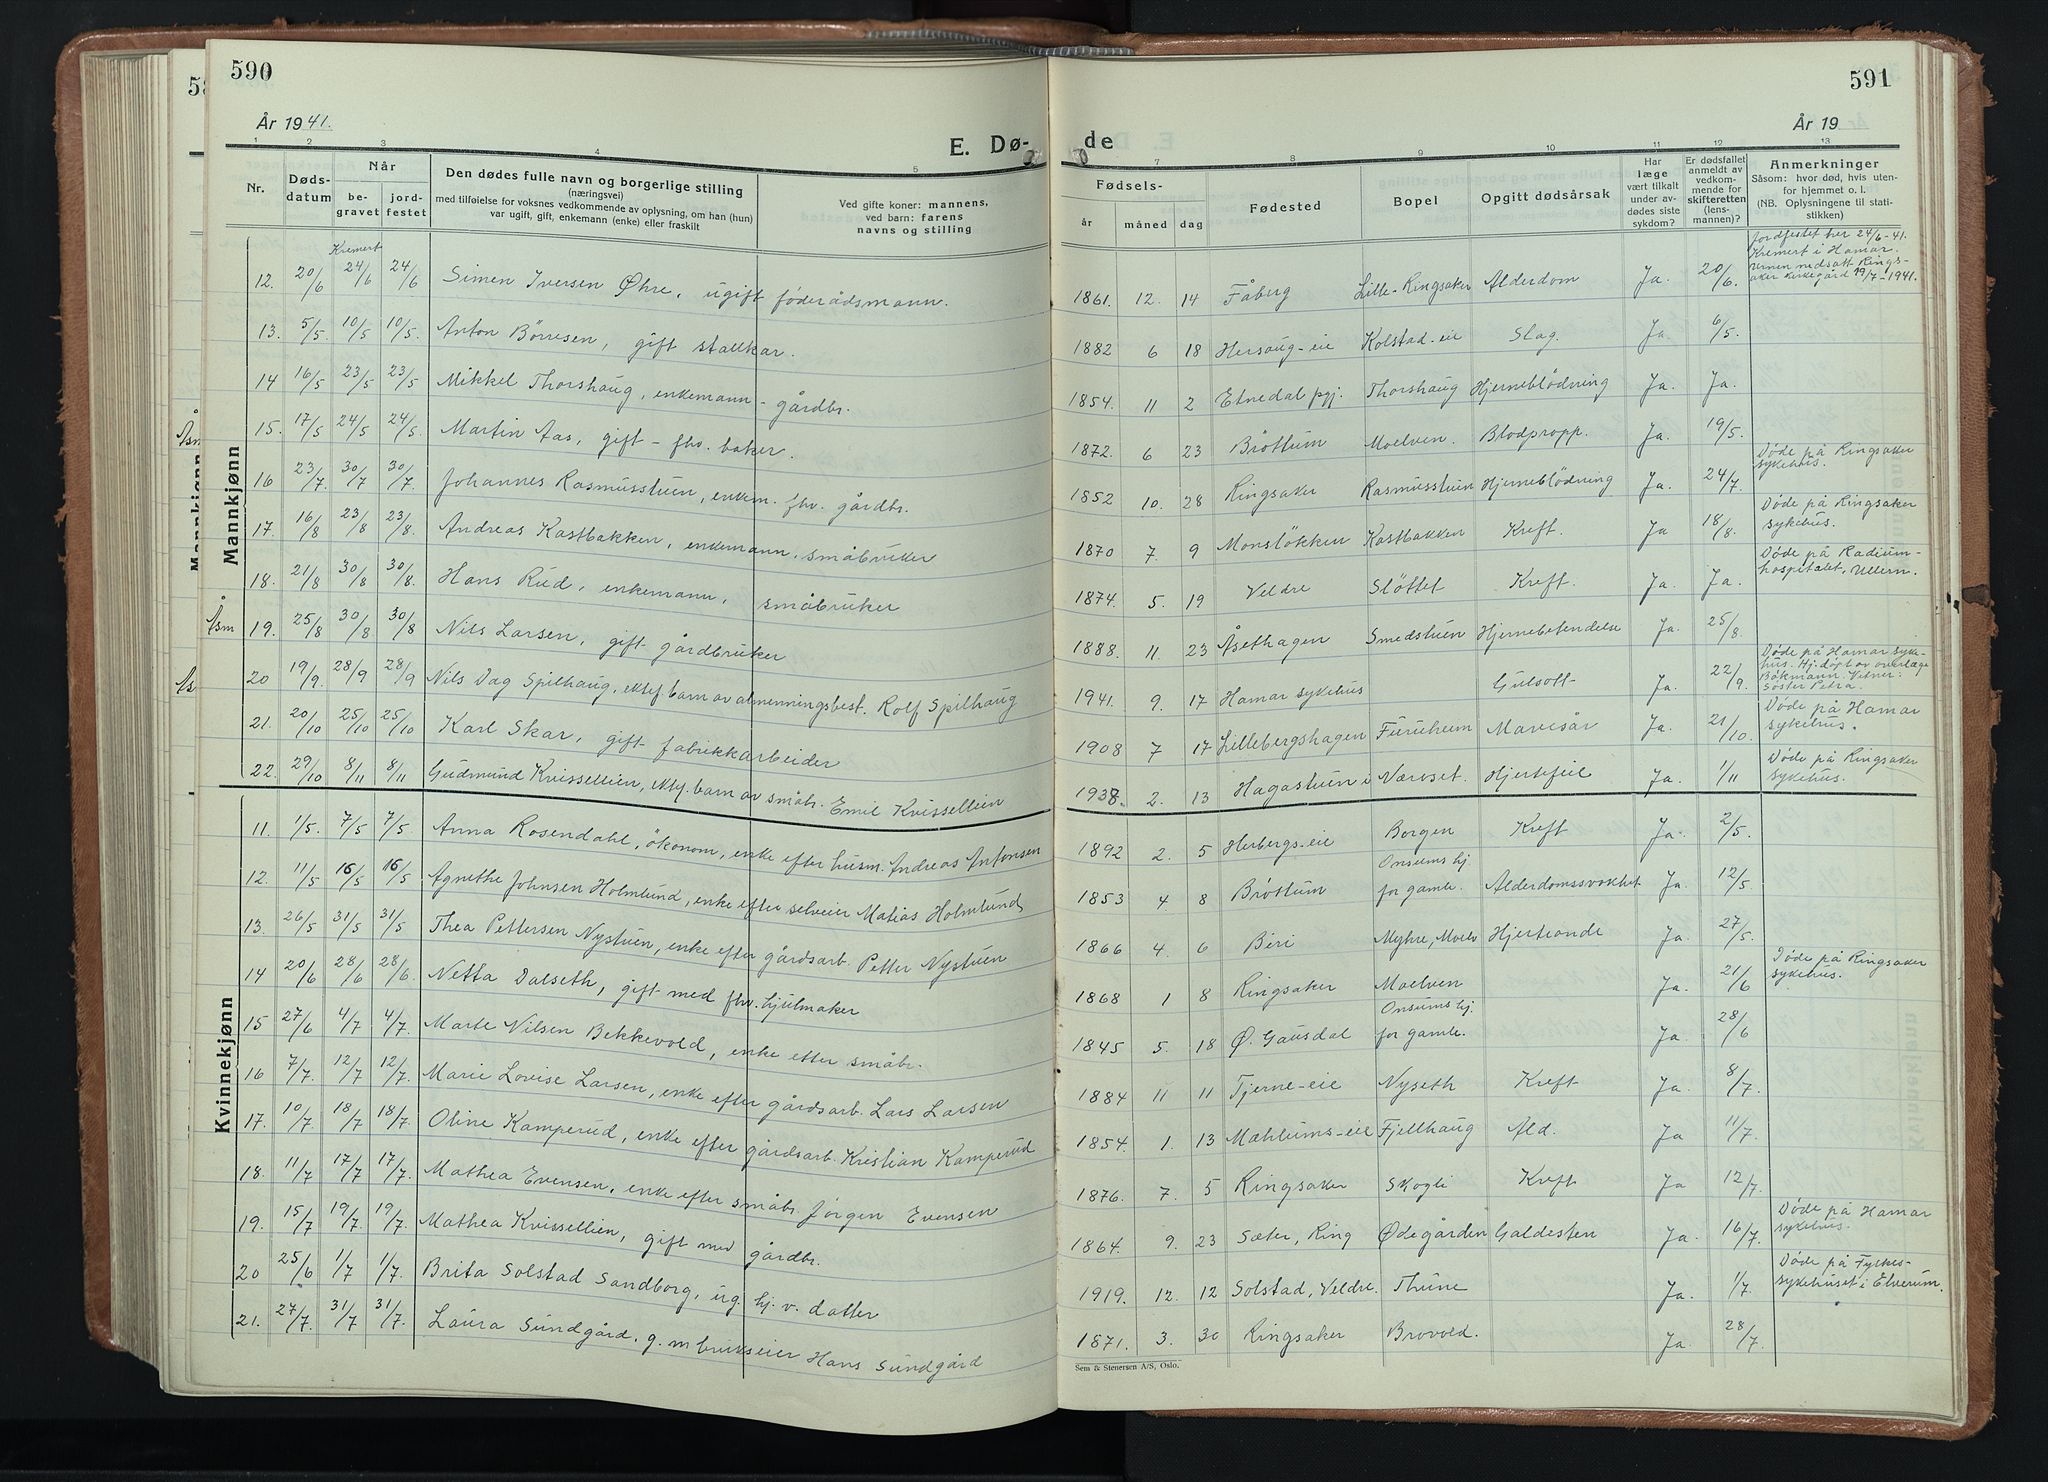 590
591
58
År 1941.
År 19
E. Dø-
de
1 2 3 4 5
7 8 9 10 11 12 13
Nr.
Døds-
datum
Når
be-
gravet
jord-
festet
Den dødes fulle navn og borgerlige stilling
(næringsvei)
med tilføielse for voksnes vedkommende av oplysning, om han (hun)
var ugift, gift, enkemann (enke) eller fraskilt
Ved gifte koner: mannens,
ved barn: farens
navns og stilling
Fødsels-
år måned dag
Fødested
Bopel
Opgitt dødsårsak
Har
læge
vært tilkalt
under av-
dødes siste
sykdom?
Er dødsfallet
anmeldt av
vedkom-
mende for
skifteretten
(lens-
mannen)?
Anmerkninger
Såsom: hvor død, hvis uten-
for hjemmet o. l.
(NB. Oplysningene til stati-
stikken)
Mannkjønn
Kremert
12. 20/6 24/6 24/6 Simen Iversen Øhre, ugift føderådsmann. 1861. 12. 14 Fåberg Lille-Ringsaker Alderdom Ja. 20/6. Jordfestet her 24/6-41.
Kremert i Hamar.
Urnen nedsatt Rings-
aker kirkegård 19/7-1941.
13. 5/5. 10/5 10/5. Anton Børresen, gift stallkar. 1882 6 18 Hersaug-eie Kolstad-eie Slag. Ja 6/5.
14 16/5 23/5 23/5. Mikkel Thorshaug, enkemann - gårdbr. 1854. 11 2 Etnedal pgj. Thorshaug Hjerneblödning Ja. Ja.
15. 17/5 24/5 24/5. Martin Aas, gift - fhv. baker. 1872. 6 23 Brøttum Moelven. Blodpropp. Ja. 19/5.
16 23/7. 30/7 30/7. Johannes Rasmusstuen, enkem. fhv. gårdbr. 1852 10. 28 Ringsaker Rasmusstuen Hjerneblödning Ja. 24/7. Døde på Ringsaker
sykehus.
17. 16/8 23/8 23/8. Andreas Kastbakken, enkemann. småbruker 1870 7. 9 Monsløkken Kastbakken Kreft. Ja 18/8. Døde på Ringsaker
sykehus.
18. 21/8 30/8 30/8. Hans Rud, enkemann, småbruker 1874. 5. 19 Veldre Sløttet Kreft. Ja. Ja. Døde på Radium-
hospitalet, Ullern.
19. 25/8 30/8 30/8 Nils Larsen, gift gårdbruker 1888. 11. 23 Åsethagen Smedstuen Hjernebetendelse Ja. 25/8.
20 19/9. 28/9 28/9 Nils Dag Spilhaug, ektef. barn av almenningsbest. Rolf Spilhaug 1941. 9. 17 Hamar sykehus Gulsott Ja. 22/9. Døde på Hamar syke-
hus. Hj.døpt av overlæge
Bøkmann. Vitner:
Søster Petra.
21. 20/10 25/10 25/10 Karl Skar, gift fabrikkarbeider 1908 7 17 Lillebergshagen Furuheim Mavesår Ja. 21/10. Døde på Hamar
sykehus.
22. 29/10 8/11 8/11 Gudmund Kvissellien, ektf. barn av småbr. Emil Kvissellien 1938. 2. 13 Hagastuen i Næroset. Hjertefeil Ja. 1/11 Døde på Ringsaker
sykehus.
Kvinnekjønn
11. 1/5. 7/5 7/5 Anna Rosendahl, økonom, enke efter husm. Andreas Antonsen 1892 2. 5 Herbergs-eie Borgen Kreft Ja. 2/5.
12. 11/5 16/5 16/5 Agnethe Johnsen Holmlund, enke efter selveier Matias Holmlund 1853 4. 8 Brøttum Onsums hj.
for gamle. Alderdomssvakhet Ja. 12/5.
13. 26/5 31/5 31/5 Thea Pettersen Nystuen, enke efter gårdsarb. Petter Nystuen 1866 4. 6 Biri Myhre, Moelv Hjerteonde Ja. 27/5.
14 20/6 28/6 28/6. Netta Dalseth, gift med fhv. hjulmaker 1868 1 8 Ringsaker Moelven Ja. 21/6 Døde på Ringsaker
sykehus.
15 27/6 4/7 4/7. Marte Nilsen Bekkevold, enke efter småbr. 1845 5. 18 Ø. Gausdal Onsums hj.
for gamle. Ja 28/6
16 7/7. 12/7 12/7. Marie Lovise Larsen, enke efter gårdsarb. Lars Larsen 1884 11 11 Tjerne-eie Nyseth Kreft Ja. 8/7.
17. 10/7 18/7 18/7. Oline Kamperud, enke efter gårdsarb. Kristian Kamperud 1854. 1. 13 Mæhlums-eie Fjellhaug Ald. Ja 11/7.
18. 11/7 17/7 17/7. Mathea Evensen, enke efter småbr. Jørgen Evensen 1876. 7. 5 Ringsaker Skogli Kreft Ja 12/7.
19. 15/7 19/7. 19/7. Mathea Kvissellien, gift med gårdbr. 1864. 9. 23 Sæter, Ring Ødegården Galdesten Ja. 16/7. Døde på Hamar
sykehus.
20 25/6 1/7 1/7. Brita Solstad Sandborg, ug. hj. v. datter 1919. 12. 12 Solstad, Veldre. Thune Ja. 1/7. Døde på Fylkes-
sykehuset i Elverum.
21. 27/7. 31/7 31/7. Laura Sundgård, g. m bruks eier Hans Sundgård 1871. 3. 30 Ringsaker Brovold. Ja. 28/7.
Sem & Stenersen A/S, Oslo.